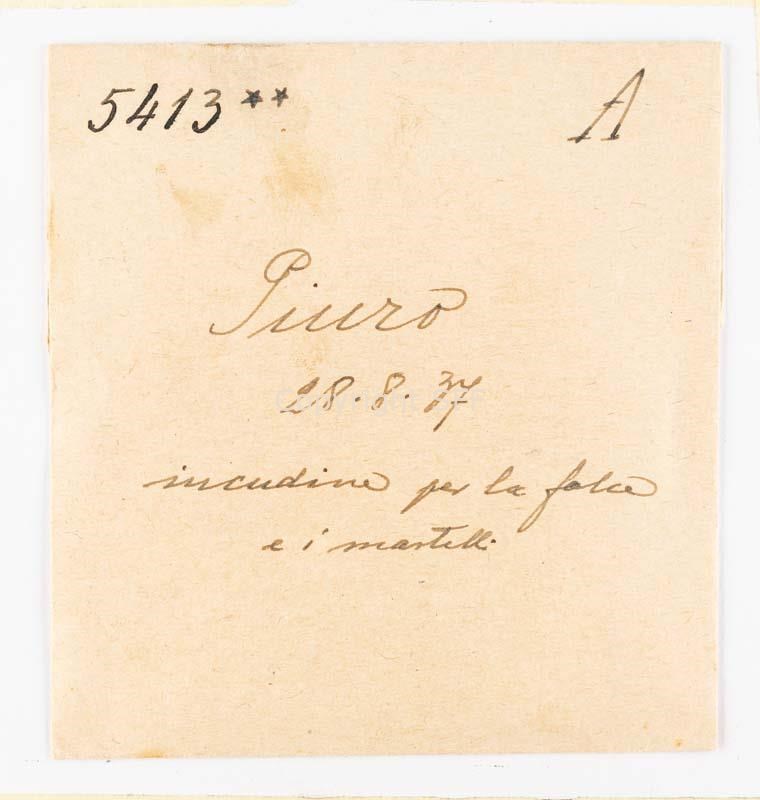 5413** A
Piuro
28.8.37
incudine per la falce
e i martelli